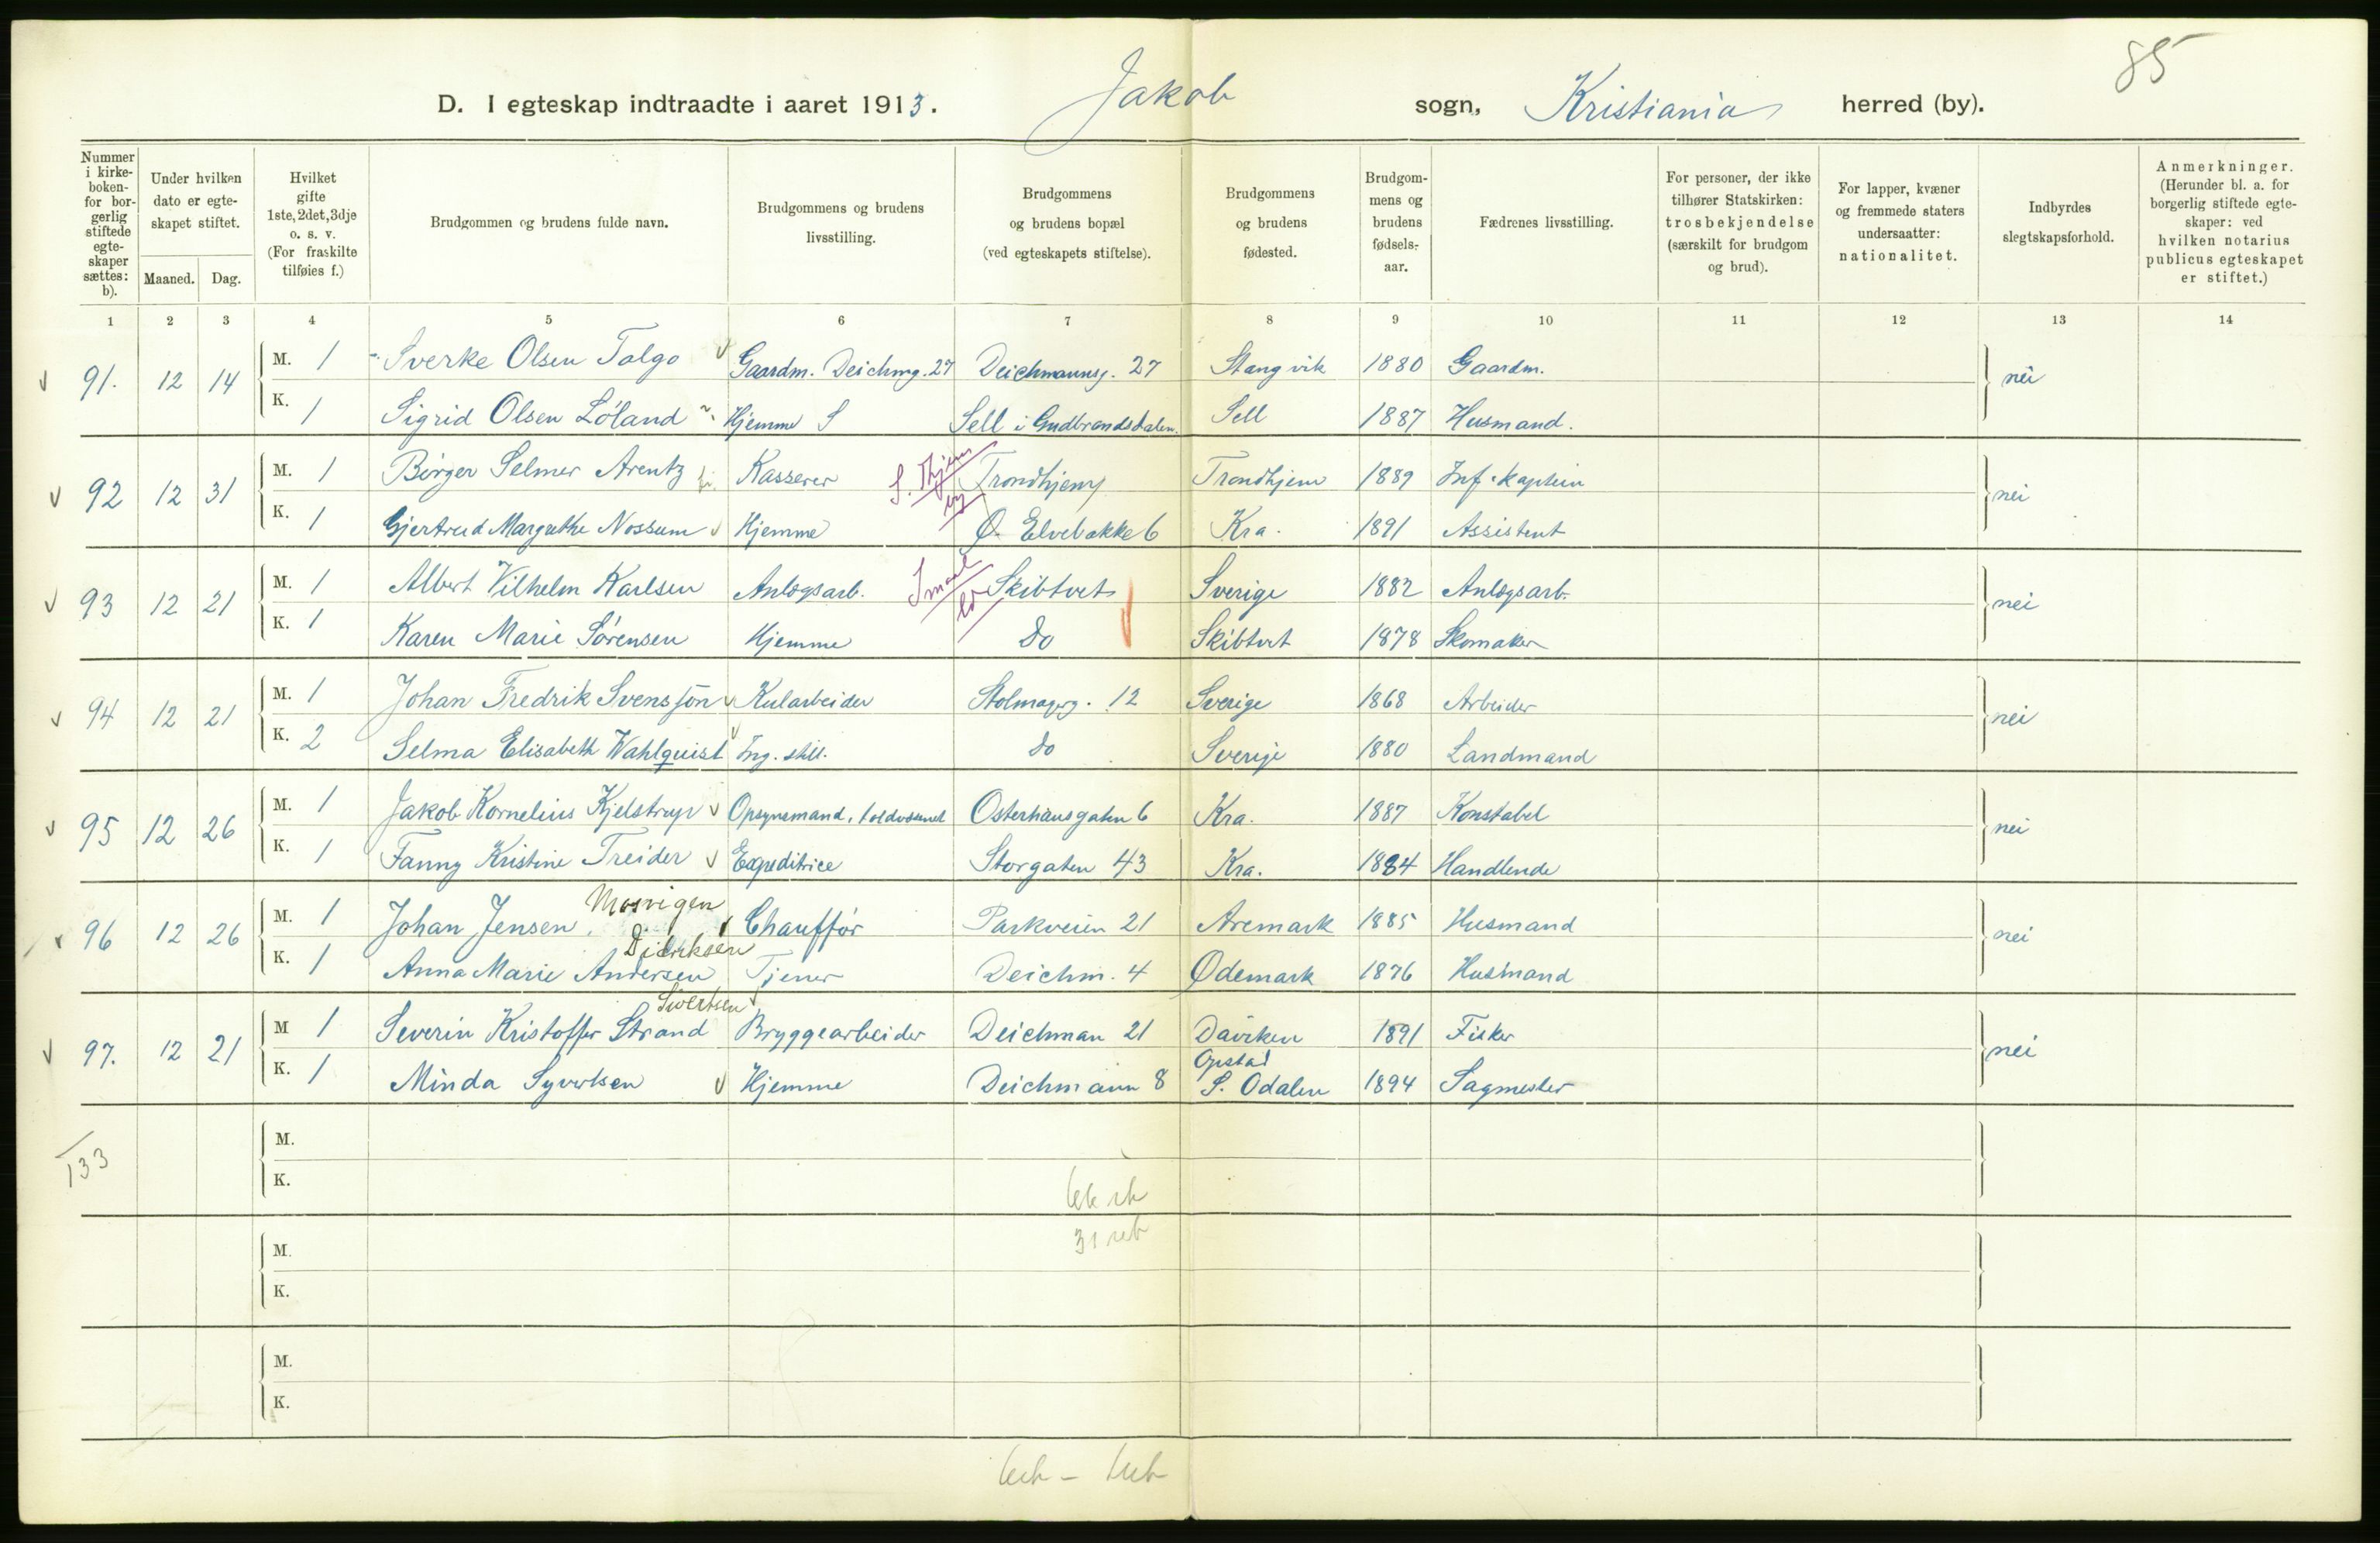 85
D. I egteskap indtraadte i aaret 1913. Jakob sogn, Kristiania herred (by).
Nummer i kirke-boken- for bor-gerlig stiftede egte-skaper sættes: b).
Under hvilken dato er egte-skapet stiftet.
Maaned. Dag.
Hvilket gifte 1ste, 2det, 3dje o. s. v. (For fraskilte tilføies f.)
Brudgommen og brudens fulde navn.
Brudgommens og brudens livsstilling.
Brudgommens og brudens bopæl (ved egteskapets stiftelse).
Brudgommens og brudens fødested.
Brudgom-mens og brudens fødsels-aar.
Fædrenes livsstilling.
For personer, der ikke tilhører Statskirken: trosbekjendelse (særskilt for brudgom og brud).
For lapper, kvæner og fremmede staters undersaatter: nationalitet.
Indbyrdes slegtskapsforhold.
Anmerkninger. (Herunder bl. a. for borgerlig stiftede egte-skaper: ved hvilken notarius publicus egteskapet er stiftet.)
1 2 3 4 5 6 7 8 9 10 11 12 13 14
91. 12 14 M. 1 Sverke Olsen Talgo Gaardm. Deichmg. 27 Deichmannsg. 27 Stangvik 1880 Gaardm. nei
K. 1 Sigrid Olsen Löland Hjemme S Sell i Gudbrandsdalen. Sell 1887 Husmand.
92 12 31 M. 1 Birger Selmer Arentz Kasserer S. Thjem by Trondhjem Trondhjem 1889 Inf. kaptein nei
K. 1 Gjertrud Margrethe Nossum Hjemme Ø. Elvebakke 6 Kra. 1891 Assistent
93 12 21 M. 1 Albert Vilhelm Karlsen Anlægsarb. Smaal Skibtvet Sverige 1882 Anlægsarb. nei
K. 1 Karen Marie Sörensen Hjemme do Skibtvet 1878 Skomaker
94 12 21 M. 1 Johan Fredrik Svensson Kularbeider Stolmagerg. 12 Sverige 1868 Arbeider nei
K. 2 Selma Elisabeth Wahlquist Ing. still. do Sverige 1880 Landmand
95 12 26 M. 1 Jakob Kornelius Kjelstrup Opsynsmand, toldvæsenet Osterhausgaten 6 Kra. 1887 Konstabel nei
K. 1 Fanny Kristine Treider Expeditrice Storgaten 43 Kra. 1884 Handlende
Mosvigen
96 12 26 M. 1 Johan Jensen Chauffør Parkveien 21 Aremark 1885 Husmand nei
Didriksen
K. 1 Anna Marie Andersen Tjener Deichm. 4 Ødemark 1876 Husmand
Sivertsen
97. 12 21 M 1 Severin Kristoffer Strand Bryggearbeider Deichman 21 Daviken 1891 Fisker nei
Opstad
K. 1 Minda Syvertsen Hjemme Deichmann 8 S. Odalen 1894 Sagmester
133
M.
K.
M.
31
K.
M.
K.